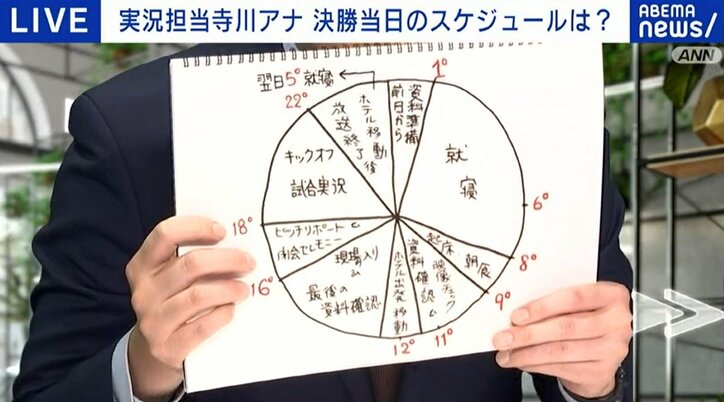 LIVE
実況担当寺川アナ 決勝当日のスケジュールは?
ABEMA
news/
ANN
翌日5°就寝
22°
1°
前日から
資料準備
就寝
6°
8°
朝食
9°
起床
映像チェック
資料確認
11°
ホテル出発移動
12°
現場入り
最後の
資料確認
16°
ピッチリポート
閉会セレモニー
18°
キックオフ
試合実況
放送終了
ホテル移動後